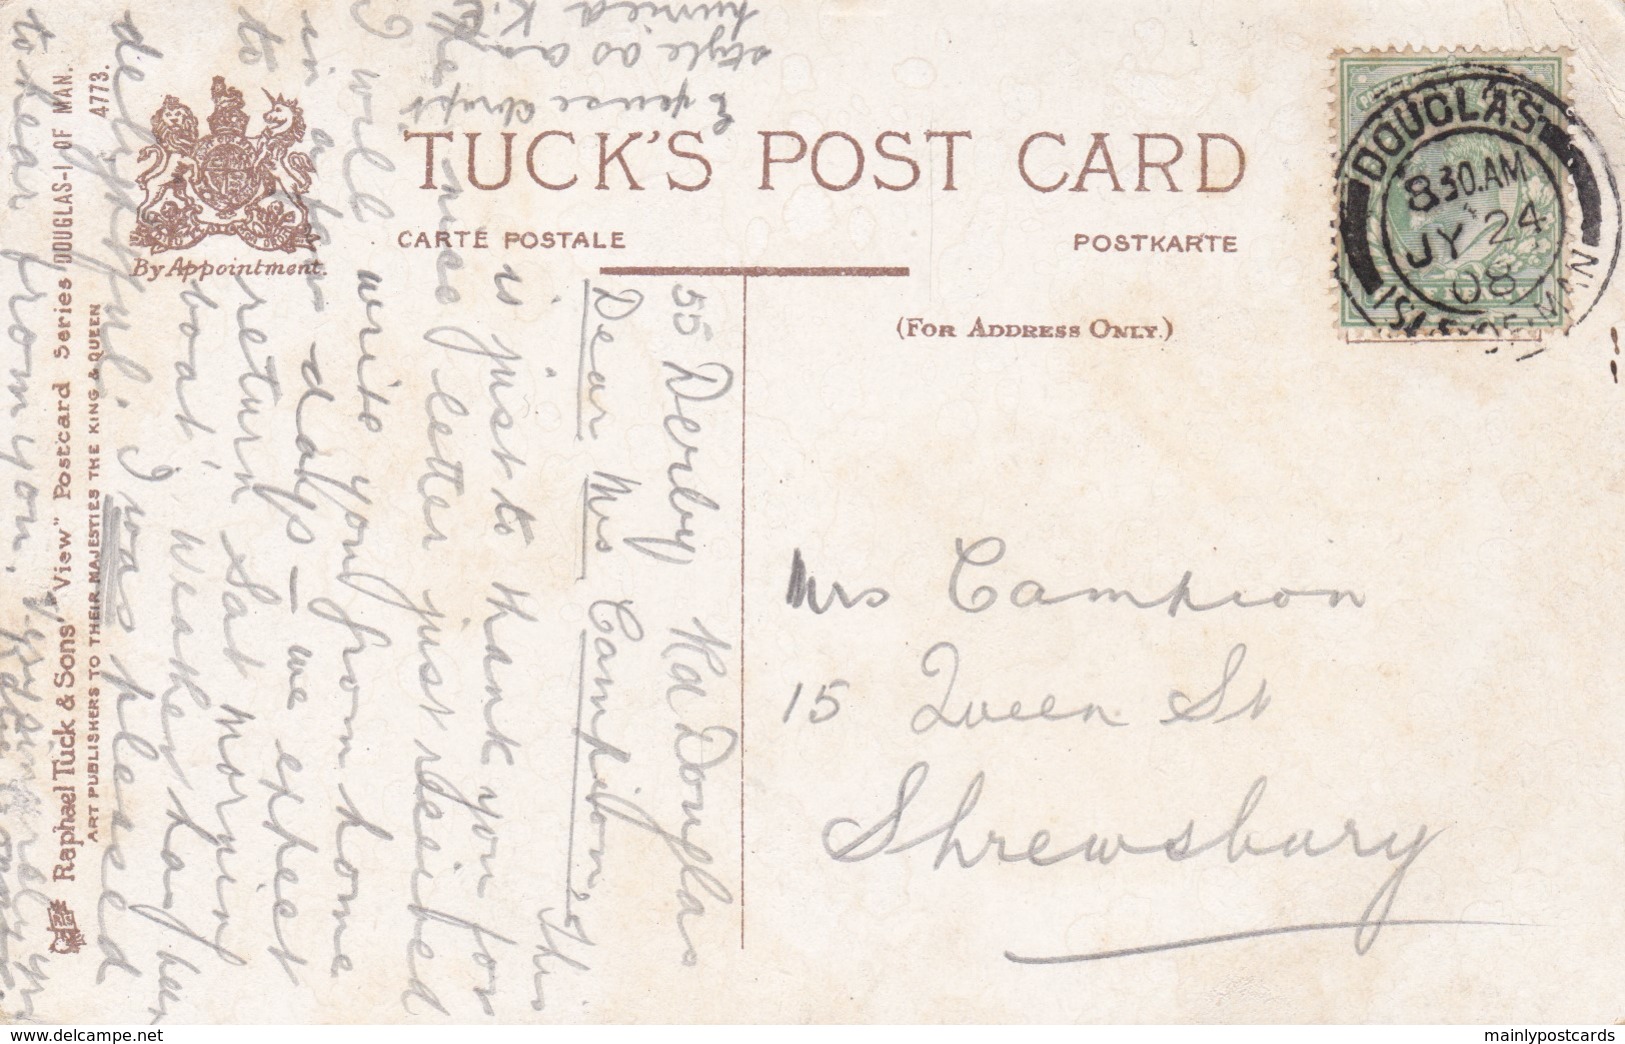 TUCK'S POST CARD
CARTE POSTALE
POSTKARTE
(For Address Only.)
By Appointment.
Raphael Tuck & Sons' "View" Postcard Series DOUGLAS-I OF MAN. 4773.
ART PUBLISHERS TO THEIR MAJESTIES THE KING & QUEEN
DOUGLAS
830.AM
JY 24
08
ISLE-OF-MAN
Mrs Campion
15 Queen St
Shrewsbury
55 Derby Rd Douglas
Dear Mrs Campion, This
is just to thank you for
nice letter just received
I will write you from home
in a few days — we expect
to return Sat morning
boat Weather has been
delightful. I was pleased
to hear from you.
style as am
hurried
www.delcampe.net
mainlypostcards